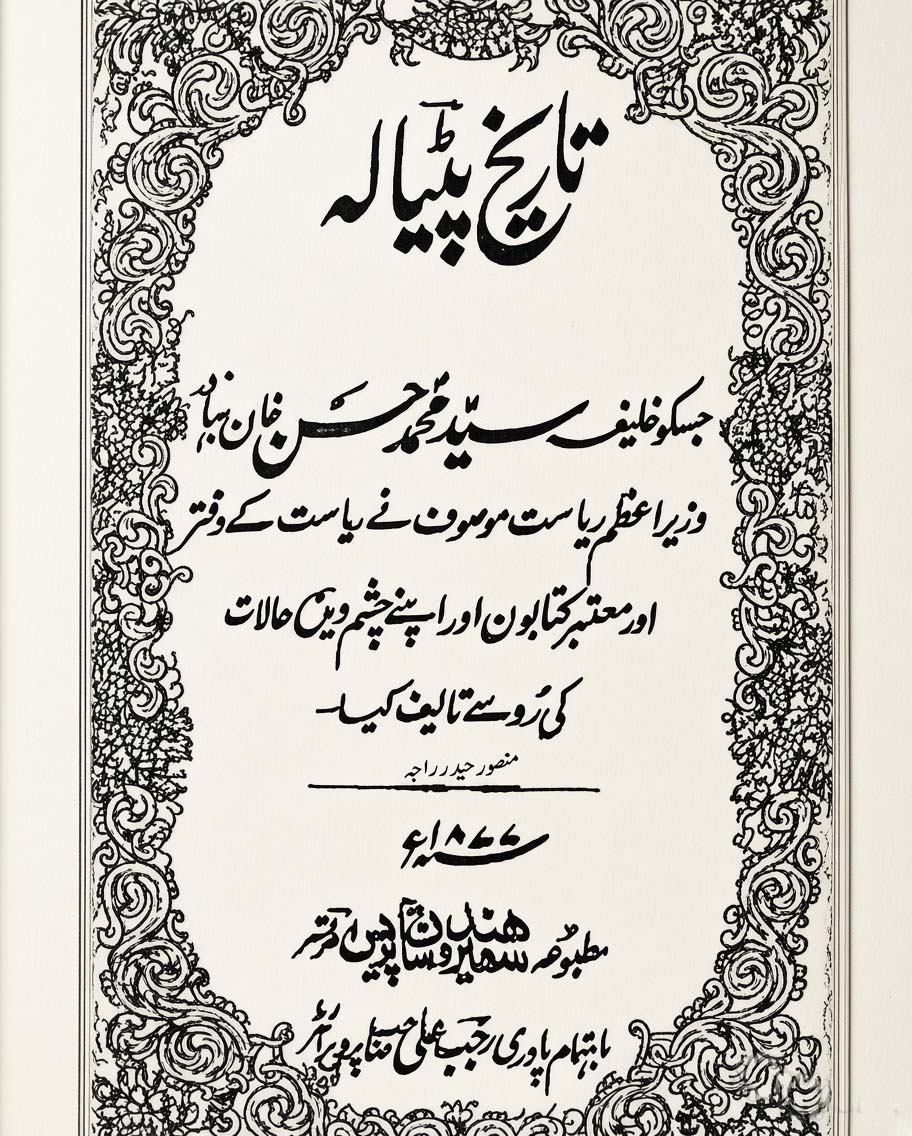 تاریخ پٹیالہ
جسکو خلیفہ سیّد محمد حسن خان بہادر
وزیر اعظم ریاست موصوف نے ریاست کے دفتر
اور معتبر کتابون اور اپنے چشم دین حالات
کی رُو سے تالیف کیا۔
منصور حیدر راجہ
سنہ ۱۸۷۷ء
مطبوعہ پریس امرتسر
باہتمام پادری رجب علی پروپرائٹر